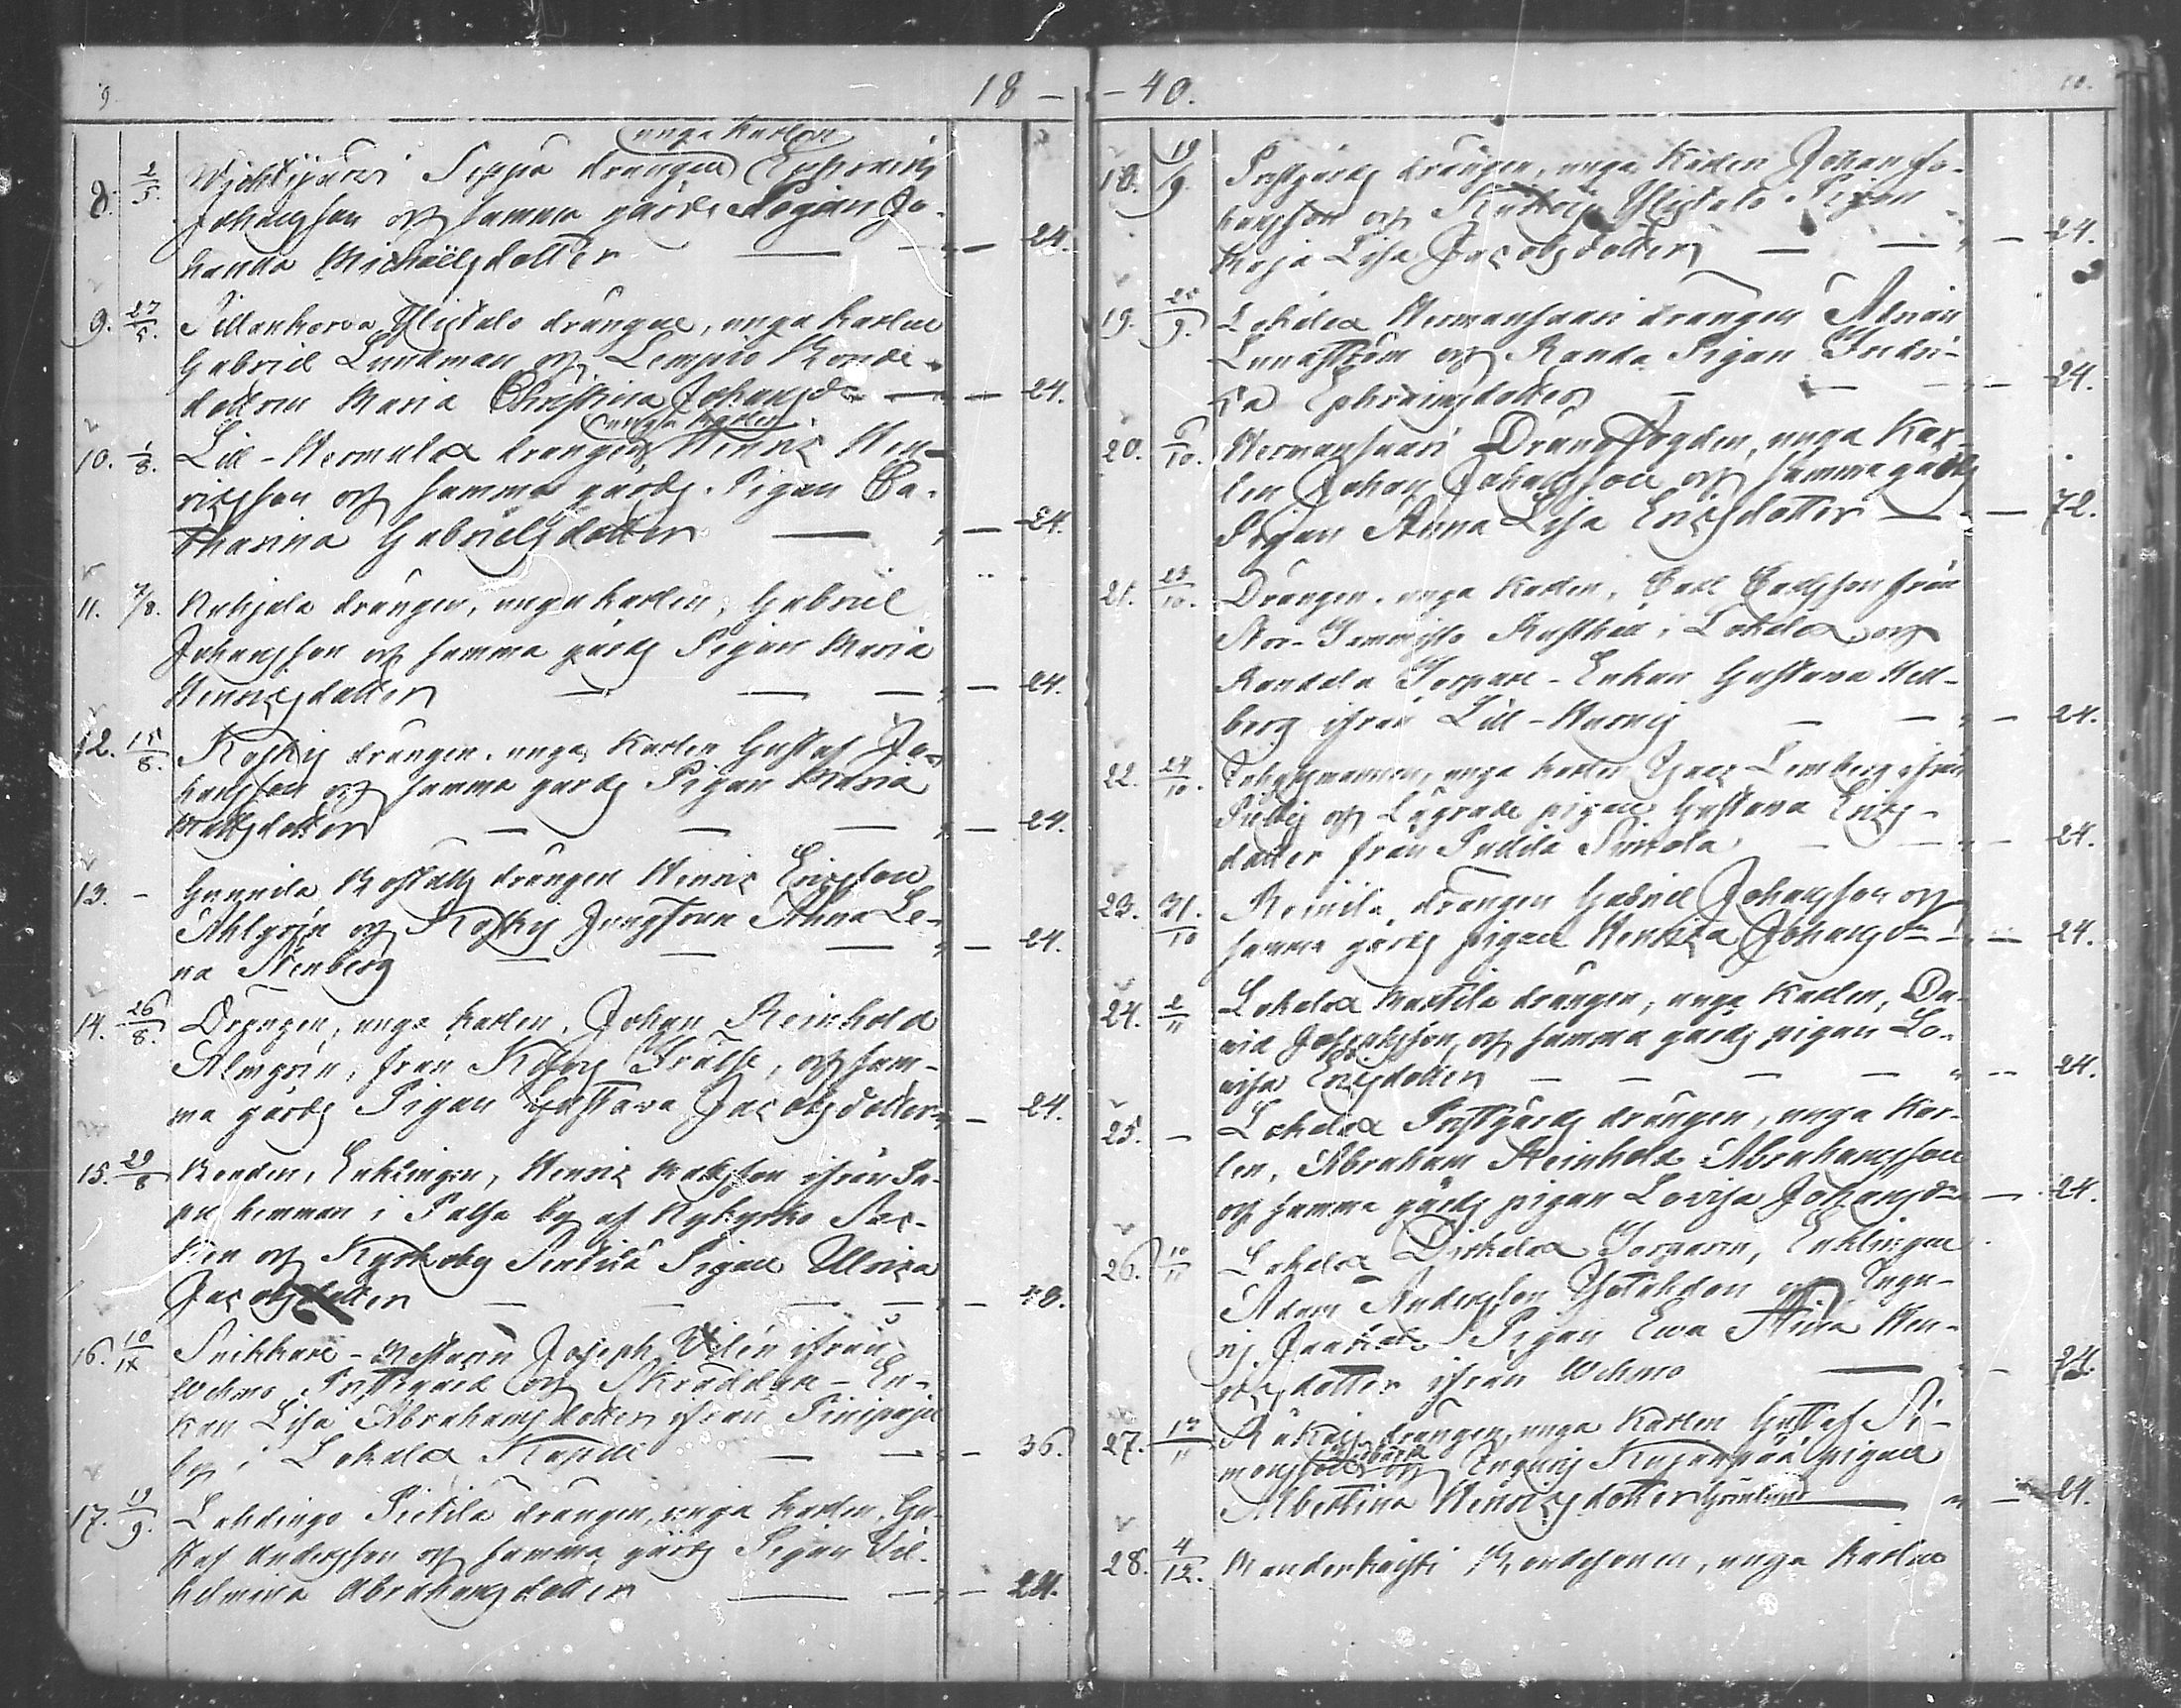 9.
18 - - 40.
10.
unga Karlen
8. 2/5. Seppä drängen Ephraim
Johansson och samma gårds Pigan Jo-
hanna Michaelsdotter — " — 24.
9. 27/5. Sillankorva Ylistalo drängen, unga Karlen
Gabriel Lundman och Bonde-
dottren Maria Christina Johansdr — " — 24.
unga Karlen
10. 1/8. Lill-Wermala drängen Henric Hen-
ricsson och samma gårds Pigan Ca-
tharina Gabrielsdotter — " — 24.
11. 7/8. drängen, unga Karlen, Gabriel
Johansson och samma gårds Pigan Maria
Henricsdotter — — — " — 24.
12. 15/8. Koskis drängen, unga Karlen Gustaf Jo-
hansson och samma gårds Pigan Maria
Mattsdotter — — — " — 24.
13. - Gunnila drängen Henric Ericsson
Ahlgrén och Koskis Jungfrun Anna Le-
na Stenberg — — — " — 24.
14. 26/8. Drängen, unga Karlen, Johan Reinhold
Almgrén, från och sam-
ma gårds Pigan Gustava Jacobsdotter " — 24.
15. 29/8 Bonden, Enklingen, Henric Mattsson ifrån
hemman i Palsa by af Nykyrko Soc-
ken och Kyrkoby Pigan Ulrica
Jacobsdotter — — — — " — 48.
16. 10/9 Snikkare-Mästaren Joseph Vilén ifrån
Wehmo Prestegård och Skräddare-En-
kan Lisa Abrahamsdotter ifrån Pinipaju
by i Lokalax Kapell — — " — 36.
17. 19/9. Lahdingo Sictilä drängen, unga Karlen, Gu-
staf Andersson och samma gårds Pigan Vil-
helmina Abrahamsdotter — — " — 24.
18. 19/9. Prestgårds drängen, unga Karlen Johan Jo-
hansson och Ylistalo Pigan
Kaja Lisa Jacobsdotter — — " — 24.
19. 20/9. Lokalax Hermansaari drängen Adrian
Lundström och Randa Pigan Fredri-
ca Ephraimsdotter — — " — 24.
20. 6/10. Hermansaari Drängfogden, unga Kar-
len Johan Johansson och samma gårds
Pigan Anna Lisa Ericsdotter — " — 72.
21. 23/10. Drängen, unga Karlen, Carl Carlsson från
Stor-Jumisto Rusthåll i Lokalax och
Randala Torpare-Enkan Gustava Hell-
berg ifrån Lill- — — " — 24.
22. 24/10. unga Karlen Isac Lemberg ifrån
och pigan Gustava Erics-
dotter från — — " — 24.
23. 31/10 Reinila drängen Gabriel Johansson och
samma gårds pigan Henrica Johansdr — " — 24.
24. 2/11 Lokalax Mattila drängen, unga Karlen, Da-
vid Josephsson, och samma gårds pigan Lo-
visa Ericsdotter — — — — " — 24.
25. - Lokalax Prestgårds drängen, unga Kar-
len, Abraham Reinhold Abrahamsson
och samma gårds pigan Lovisa Johansdr — 24.
26. 10/11 Lokalax Torparen, Enklingen
Adam Andersson och
Pigan Eva Stina Hen-
ricsdotter ifrån Wehmo — " — 24.
27. 13/11 drängen, unga Karlen Gustaf Si-
monsson och Kujanpää pigan
Albertina Henricsdotter Grönlund — " — 24.
28. 4/12. Bondesonen, unga Karlen